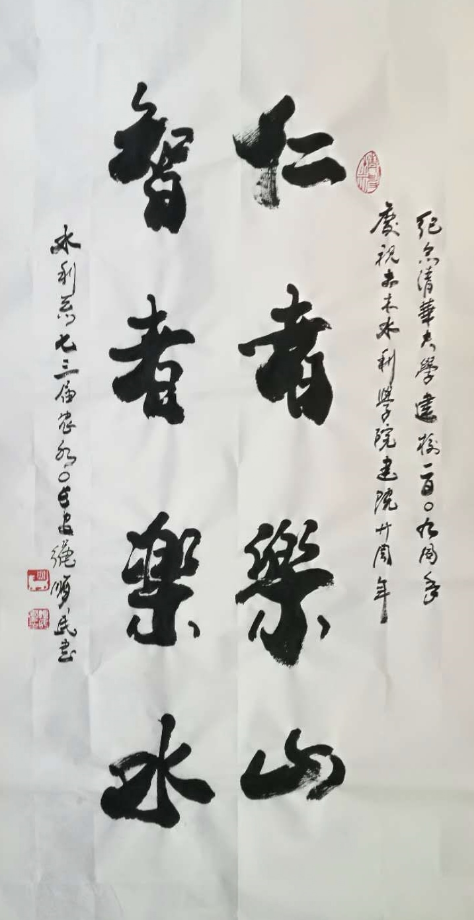 紀念清華大學建校一百〇九周年
慶祝土木水利學院建院廿周年
仁者樂山
智者樂水
水利系七三届農水〇
順民書